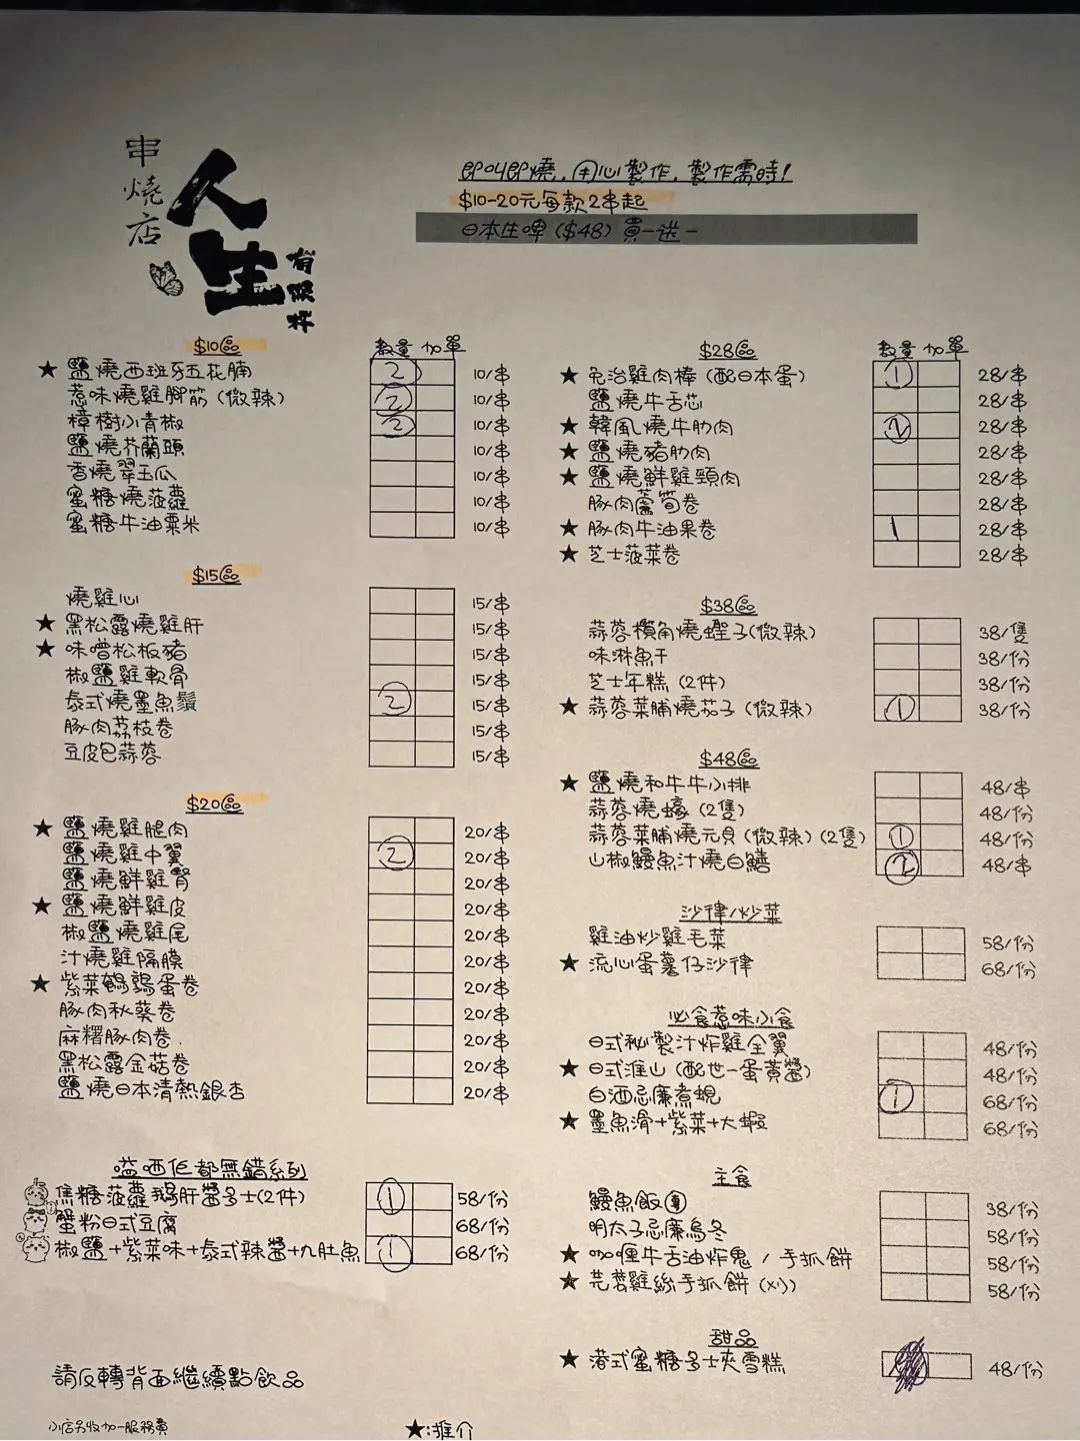 串燒店
人生
有限杯
即叫即燒，用心製作，製作需時！
$10-20元每款2串起
日本生啤（$48）買一送一
$10區 數量 加單
★ 鹽燒西班牙五花腩 2 10/串
惹味燒雞腳筋（微辣） 2 10/串
樟樹小青椒 2 10/串
鹽燒芥蘭頭 10/串
香燒翠玉瓜 10/串
蜜糖燒菠蘿 10/串
蜜糖牛油粟米 10/串
$15區
燒雞心 15/串
★ 黑松露燒雞肝 15/串
★ 味噌松板豬 15/串
椒鹽雞軟骨 15/串
泰式燒墨魚鬚 2 15/串
豚肉荔枝卷 15/串
豆皮包蒜蓉 15/串
$20區
★ 鹽燒雞腿肉 20/串
鹽燒雞中翼 2 20/串
鹽燒鮮雞腎 20/串
★ 鹽燒鮮雞皮 20/串
椒鹽燒雞尾 20/串
汁燒雞隔膜 20/串
★ 紫菜鵪鶉蛋卷 20/串
豚肉秋葵卷 20/串
麻糬豚肉卷. 20/串
黑松露金菇卷 20/串
鹽燒日本清熱銀杏 20/串
嗌哂佢都無錯系列
焦糖菠蘿鵝肝醬多士(2件) 1 58/份
蟹粉日式豆腐 68/份
椒鹽+紫菜味+泰式辣醬+九肚魚 1 68/份
請反轉背面繼續點飲品
小店另收加一服務費
★:推介
$28區 數量 加單
★ 免治雞肉棒（配日本蛋） 1 28/串
鹽燒牛舌芯 28/串
★ 韓風燒牛肋肉 28/串
★ 鹽燒豬肋肉 28/串
★ 鹽燒鮮雞頸肉 28/串
豚肉蘆筍卷 28/串
★ 豚肉牛油果卷 1 28/串
★ 芝士菠菜卷 28/串
$38區
蒜蓉欖角燒蟶子(微辣) 38/隻
味淋魚干 38/份
芝士年糕（2件） 38/份
★ 蒜蓉菜脯燒茄子（微辣） 1 38/份
$48區
★ 鹽燒和牛牛小排 48/串
蒜蓉燒蠔（2隻） 48/份
蒜蓉菜脯燒元貝（微辣）（2隻） 1 48/份
山椒鰻魚汁燒白鱔 2 48/串
沙律/炒菜
雞油炒雞毛菜 58/份
★ 流心蛋薯仔沙律 68/份
必食惹味小食
日式秘製汁炸雞全翼 48/份
★ 日式淮山（配世一蛋黃醬） 48/份
白酒忌廉煮蜆 1 68/份
★ 墨魚滑+紫菜+大蝦 68/份
主食
鰻魚飯團 38/份
明太子忌廉烏冬 58/份
★ 咖喱牛舌油炸鬼 / 手抓餅 58/份
★ 芫荽雞絲手抓餅（刈） 58/份
甜品
★ 港式蜜糖多士夾雪糕 48/份